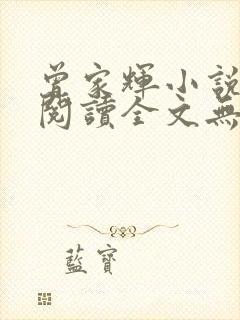 曾家輝小說
閱讀全文無
藍寶